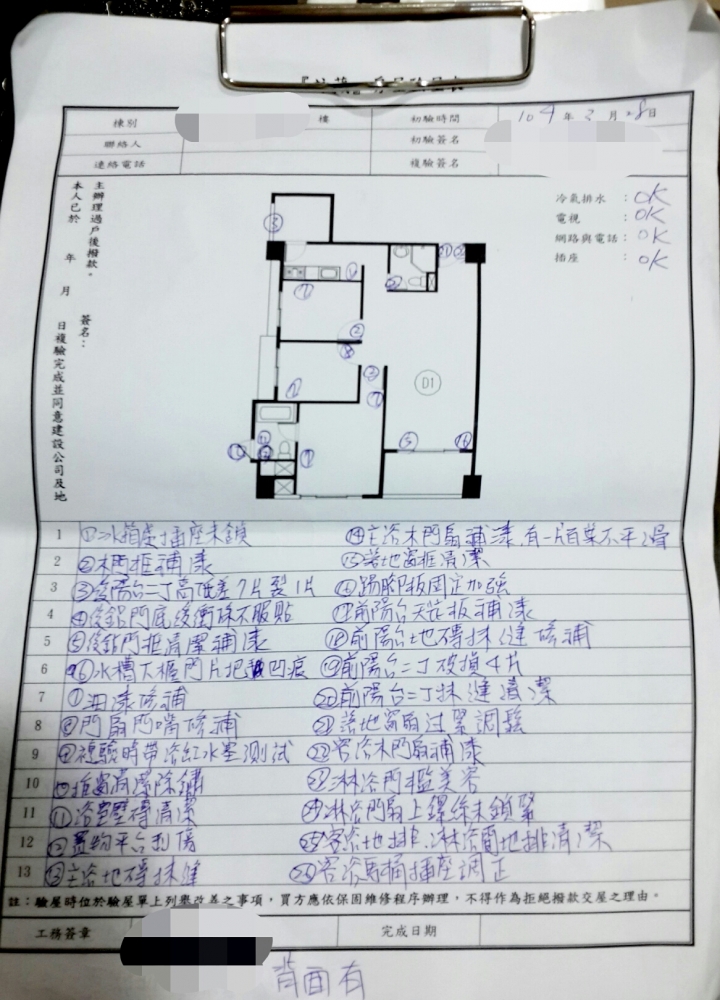 棟別 樓 初驗時間 104年3月28日
聯絡人 初驗簽名
連絡電話 複驗簽名
冷氣排水:OK
電視:OK
網路與電話:OK
插座:OK
本人已於 年 月 日複驗完成並同意建設公司及地
主辦理過戶後撥款。 簽名:
D1
1 ①冰箱處插座未鎖 ⑭主浴木門扇補漆,有一片百葉不平滑
2 ②木門框補漆 ⑮落地窗框清潔
3 ③後陽台二丁高低差7片裂1片 ⑯踢腳板固定加強
4 ④後鋁門底緩衝條不服貼 ⑰前陽台天花板補漆
5 ⑤後鋁門框清潔補漆 ⑱前陽台地磚抹縫修補
6 ⑥水槽下櫃門片把凹痕 ⑲前陽台二丁破損4片
7 油漆修補 ⑳前陽台二丁抹縫清潔
8 ⑧門扇門嘴修補 ㉑落地窗過緊調鬆
9 ⑨複驗時帶浴缸水塞測試 ㉒客浴木門扇補漆
10 ⑩推窗清潔除鏽 淋浴門檻美容
11 ⑪浴室壁磚清潔 ㉔淋浴門扇上螺絲未鎖緊
12 置物平台刮傷 ㉕客浴地排、淋浴間地排清潔
13 ⑬主浴地磚抹縫 客浴馬桶插座調正
註:驗屋時位於驗屋單上列舉改善之事項,買方應依保固維修程序辦理,不得作為拒絕撥款交屋之理由。
工務簽章 完成日期
背面有